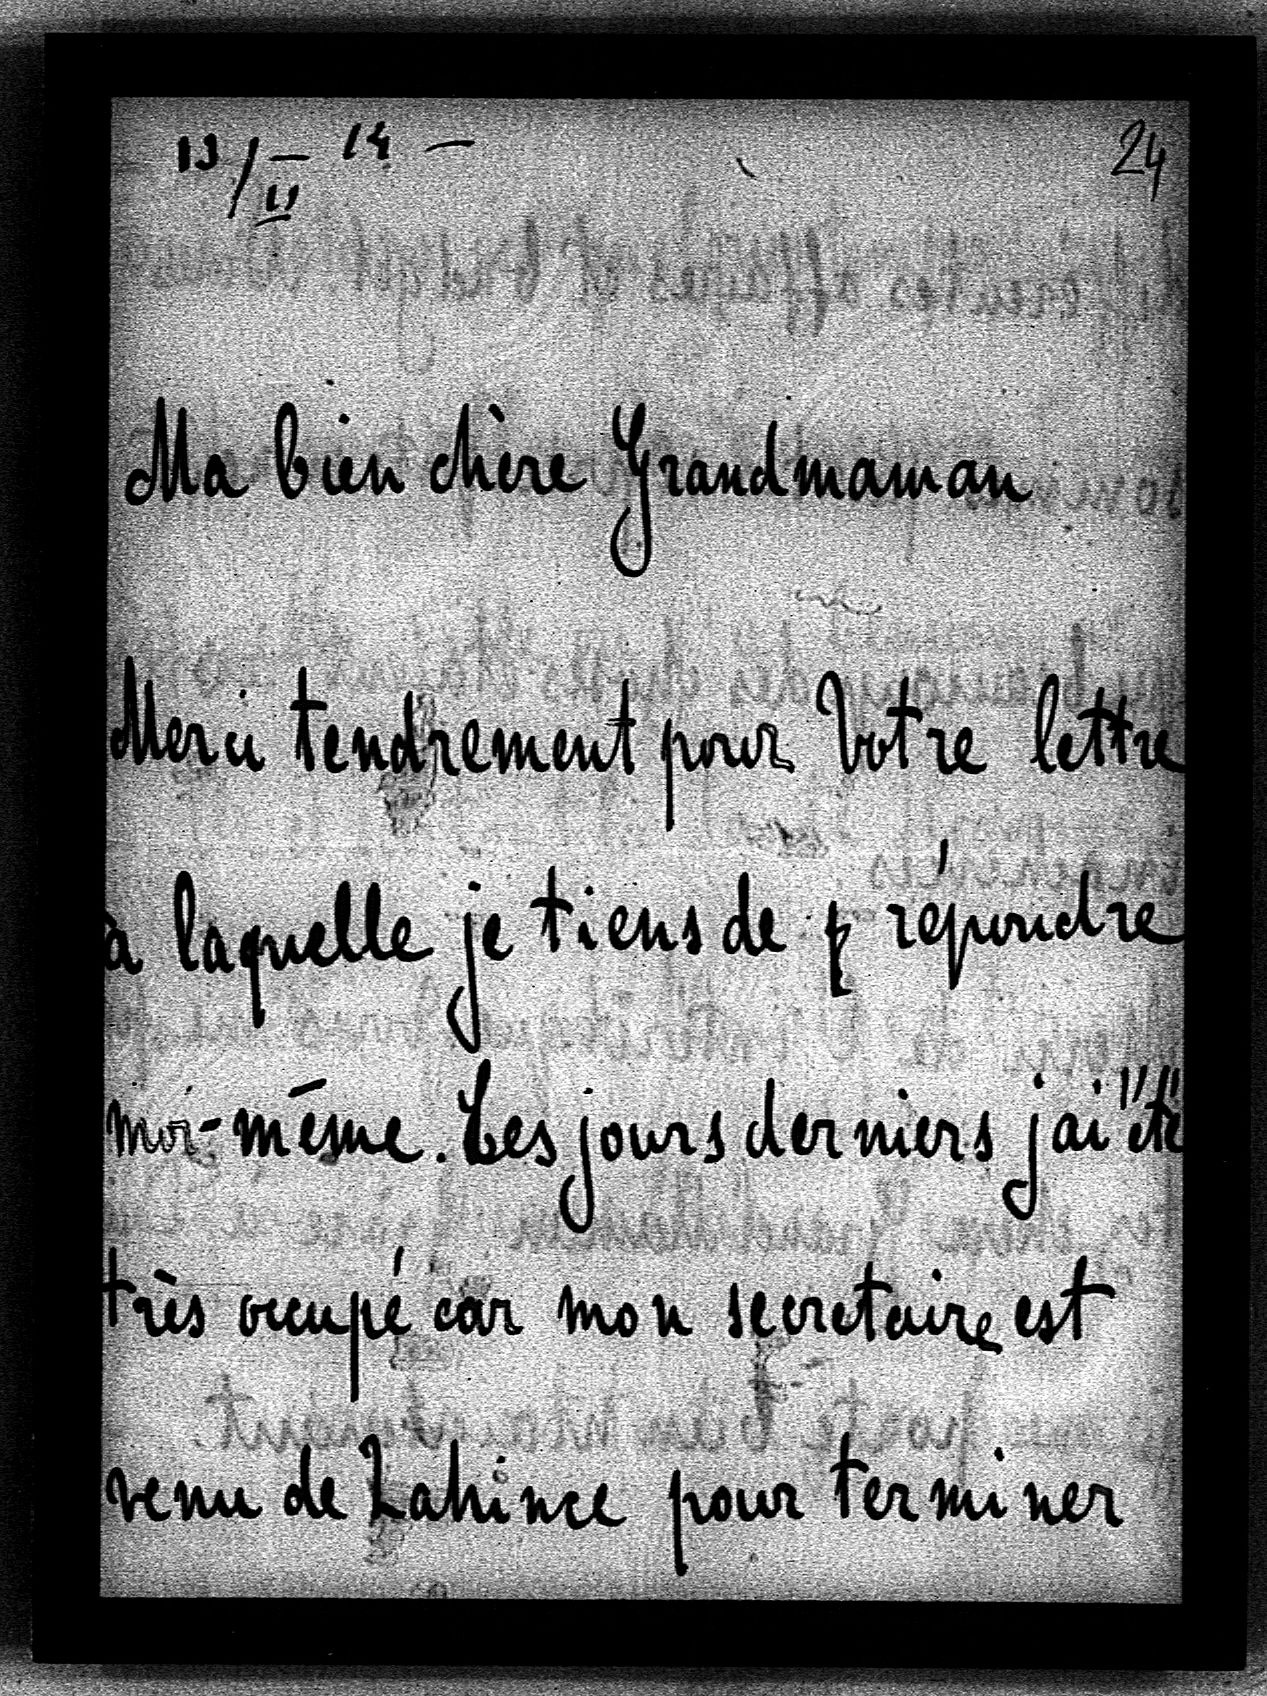 13/II 14 —
24
Ma bien chère Grandmaman
Merci tendrement pour Votre lettre
à laquelle je tiens de répondre
moi-même. Les jours derniers j'ai été
très occupé car mon secretaire est
venu de Lahince pour terminer